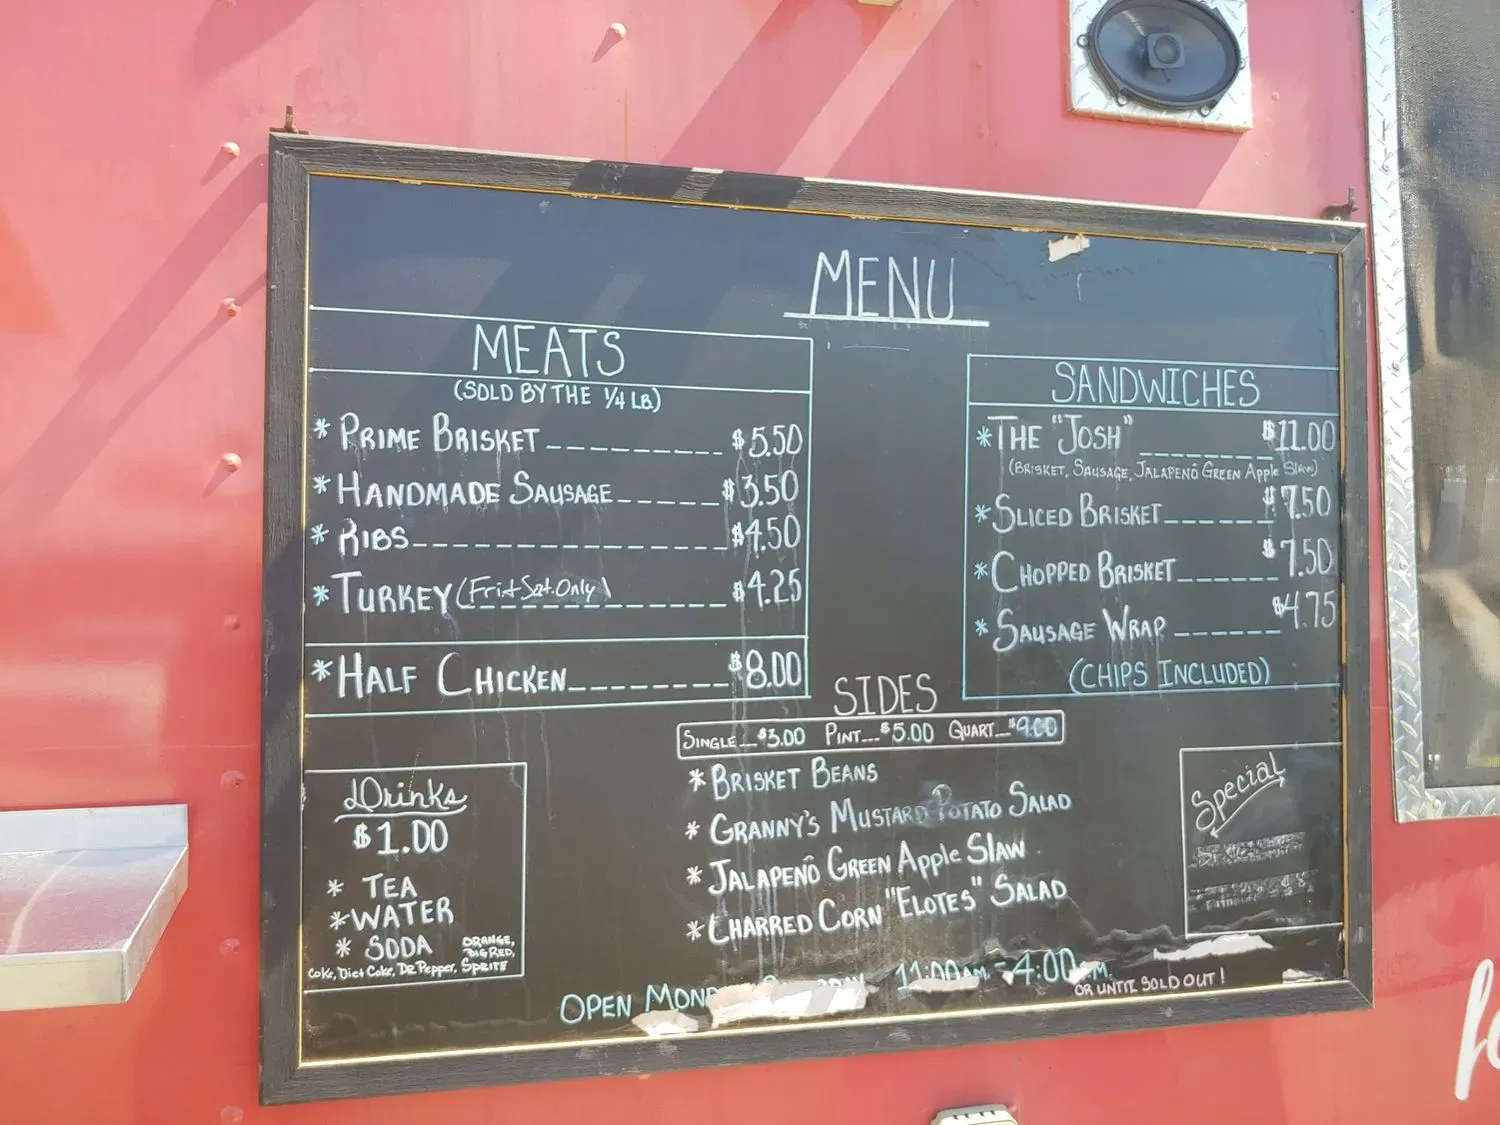 MENU
MEATS
(SOLD BY THE 1/4 LB.)
* PRIME BRISKET__________$5.50
* HANDMADE SAUSAGE______$3.50
* RIBS__________________$4.50
* TURKEY (Fri & Sat. Only)________$4.25
* HALF CHICKEN________$8.00
SANDWICHES
* THE "JOSH" _______$11.00
(BRISKET, SAUSAGE, JALAPENÕ GREEN Apple Slaw)
* SLICED BRISKET______$7.50
* CHOPPED BRISKET______$7.50
* SAUSAGE WRAP______$4.75
(CHIPS INCLUDED)
SIDES
SINGLE__$3.00 PINT__$5.00 QUART__$9.00
* BRISKET BEANS
* GRANNY'S MUSTARD POTATO SALAD
* JALAPENÕ GREEN Apple SlAW
* CHARRED CORN "ELOTES" SALAD
Drinks
$1.00
* TEA
* WATER
* SODA
ORANGE,
BIG RED,
Coke, Diet Coke, Dr Pepper, SPRITE
Special
OPEN 11:00AM - 4:00PM.
OR UNTIL SOLD OUT!